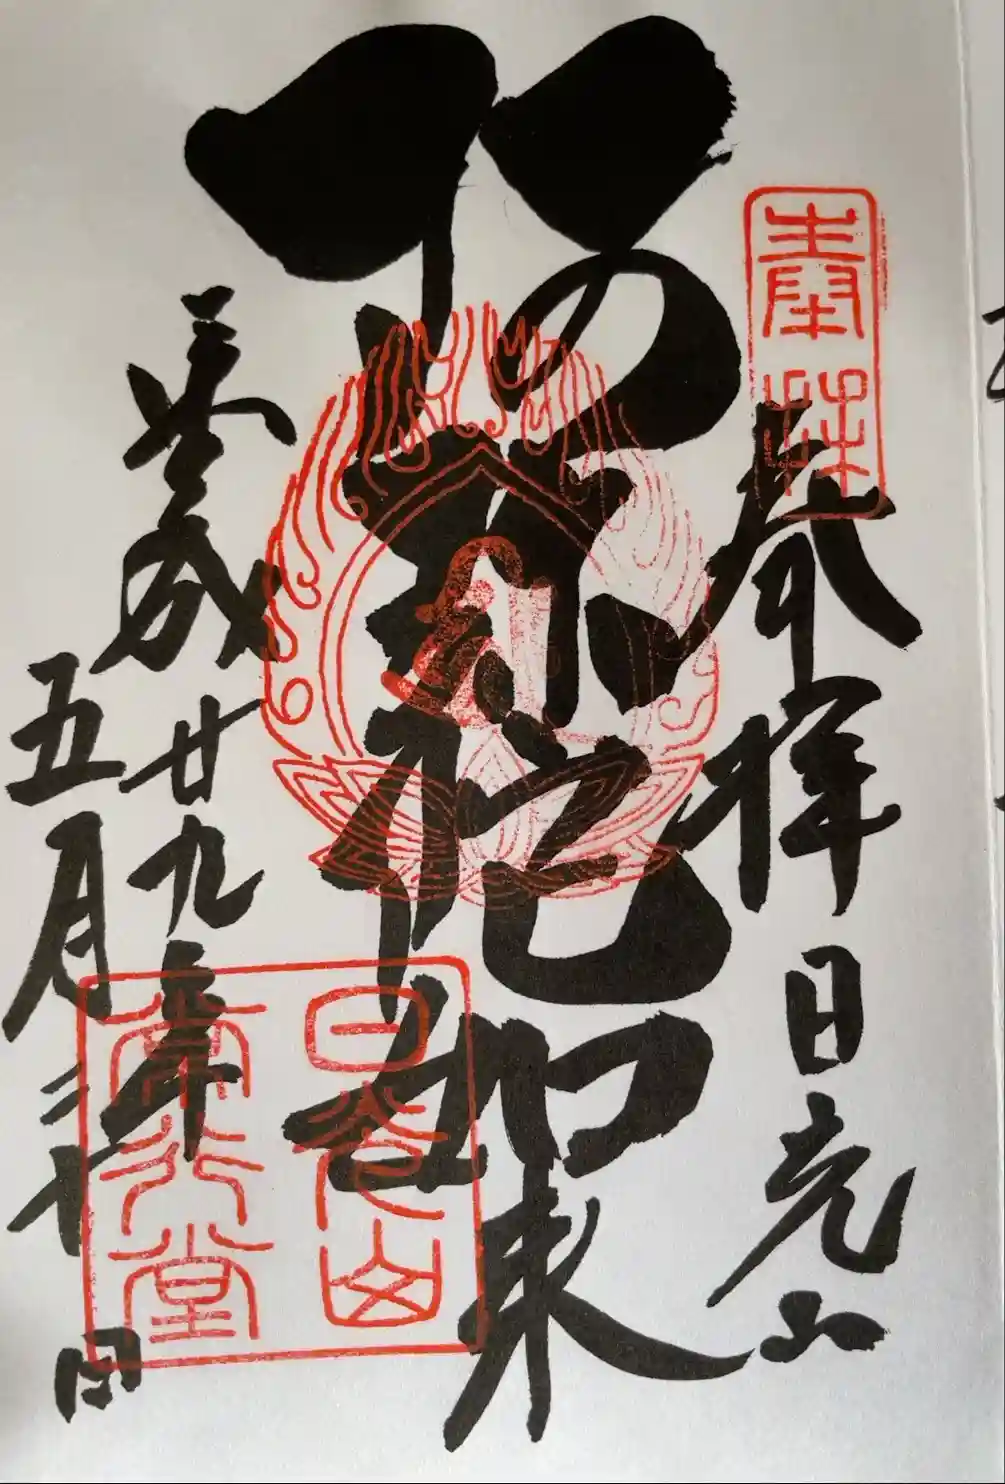 奉拝
奉拝 日光山
阿弥陀如来
日光山
常行堂
平成廿九年
五月十日